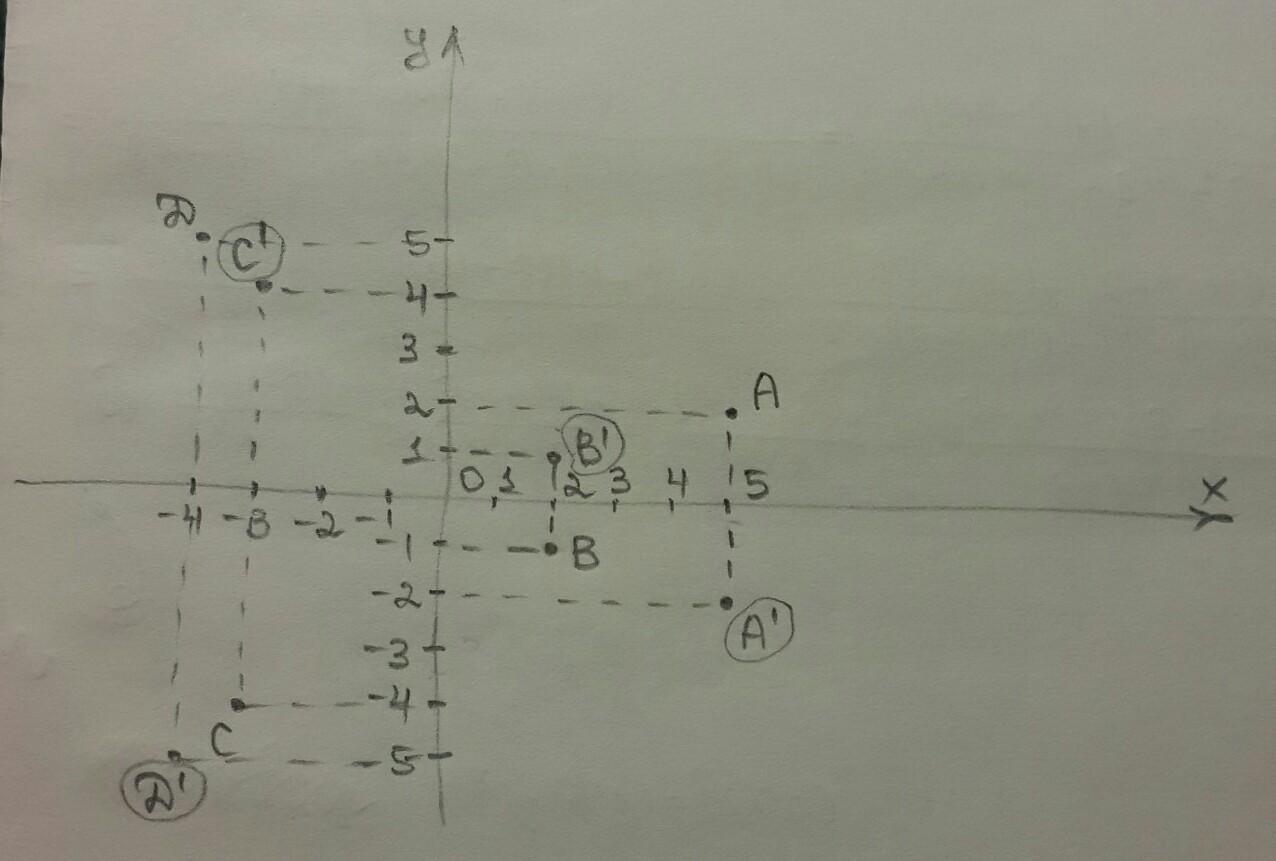 y
D
C' 5
4
3
2 A
1 B'
0 1 2 3 4 5 x
-4 -3 -2 -1
-1 B
-2
A'
-3
-4
C
-5
D'